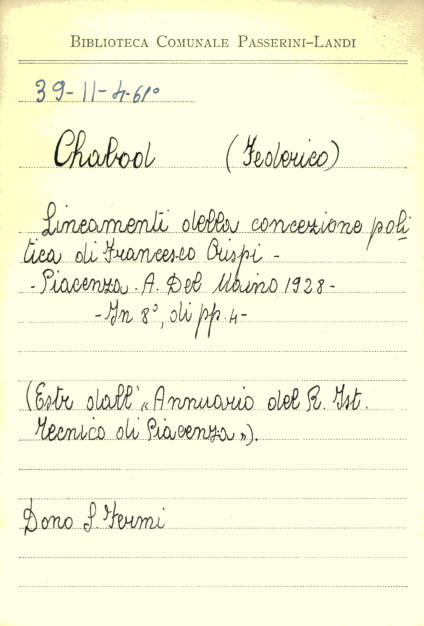 BIBLIOTECA COMUNALE PASSERINI-LANDI
39-11-4-61º
Chabod (Federico)
Lineamenti della concezione poli
tica di Francesco Crispi -
- Piacenza - A. Del Maino 1928 -
- In 8º, di pp. 4 -
(Estr dall' «Annuario del R. Ist.
Tecnico di Piacenza»).
Dono S. Fermi